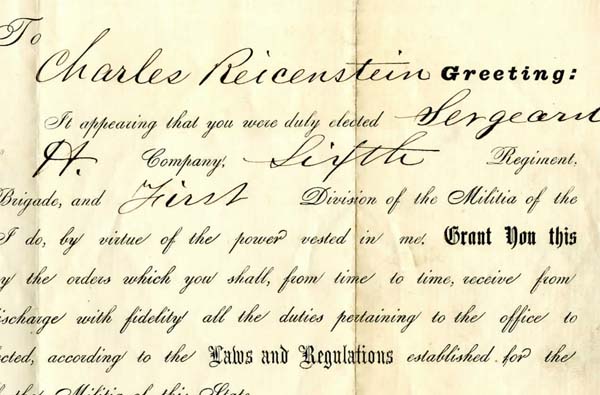 To
Charles Reicenstein Greeting:
It appearing that you were duly elected Sergeant
H. Company, Sixth Regiment,
Brigade, and First Division of the Militia of the
I do, by virtue of the power vested in me, Grant You this
y the orders which you shall, from time to time, receive from
ischarge with fidelity all the duties pertaining to the office to
cted, according to the Laws and Regulations established for the
f the Militia of this State